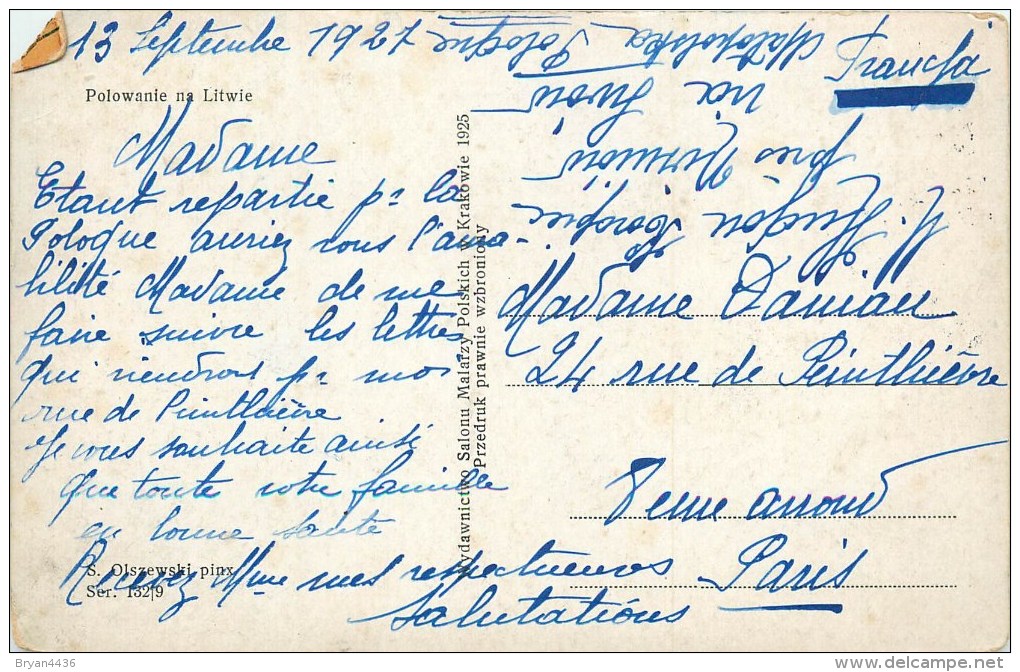 13 Septembre 1927
Polowanie na Litwie
Madame
Etant repartie pr la
Pologne auriez vous l'ama-
bilité Madame de me
faire suivre les lettres
qui viendront pr moi
rue de Pinthièvre
Je vous souhaite ainsi
que toute votre famille
en bonne santé
Recevez Mme mes respectueuses
salutations
S. Olszewski pinx.
Ser. 132/9
Wydawnictwo Salonu Malarzy Polskich w Krakowie 1925
Przedruk prawnie wzbroniony
Francja
Madame Damian
24 rue de Peinthièvre
8eme arrond
Paris
via Lwów
Małopolska
Pologne
Bryan4436
www.delcampe.net